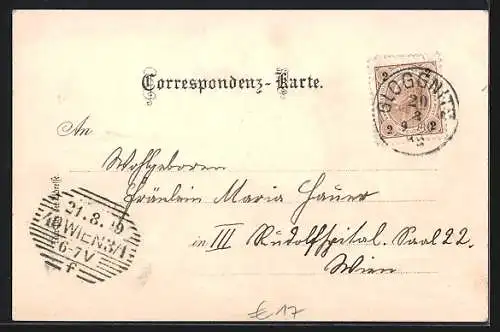 Correspondenz-Karte.
2
GLOGGNITZ
20
8
2 2
An
Wohlgeboren
Fräulein Maria Hauer
in III Rudolfspital. Saal 22.
Wien
21.8.99
40 WIEN 3/1
6-7V
f
€ 17